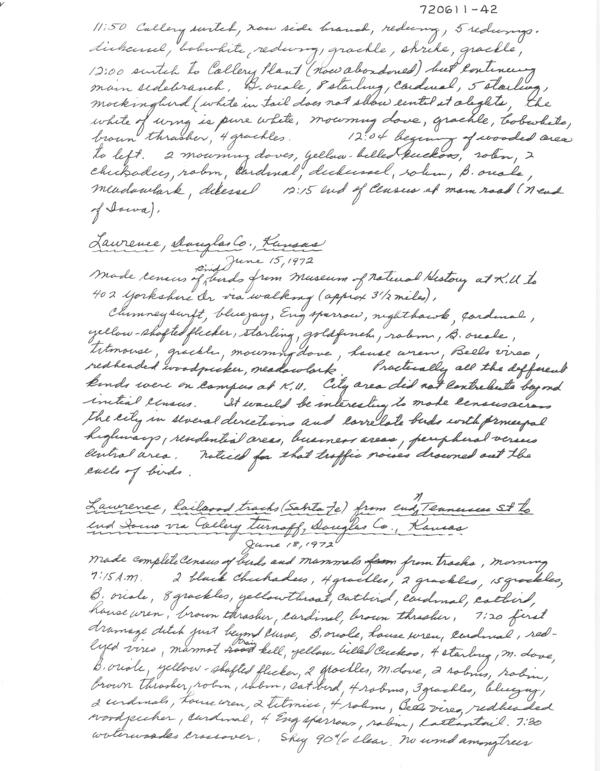 720611-42
11:50 Callery switch, now side branch, redwing, 5 redwings,
dickcissel, bobwhite, redwing, grackle, shrike, grackle,
12:00 switch to Callery Plant (now abandoned) but continuing
main sidebranch. B. oriole, 8 starling, cardinal, 5 starling,
mockingbird (white in tail does not show until it alights, the
white of wing is pure white, mourning dove, grackle, bobwhite,
brown thrasher, 4 grackles. 12:04 beginning of wooded area
to left. 2 mourning doves, yellow-billed cuckoos, robin, 2
chickadees, robin, cardinal, dickcissel, robin, B. oriole,
meadowlark, dickcissel 12:15 end of census at main road (N end
of Iowa).
Lawrence, Douglas Co., Kansas
June 15, 1972
Made census of birds from Museum of Natural History at K.U. to
402 Yorkshire Dr via walking (approx 3 1/2 miles).
Chimney swift, bluejay, Eng sparrow, nighthawk, cardinal,
yellow-shafted flicker, starling, goldfinch, robin, B. oriole,
titmouse, grackle, mourning dove, house wren, Bells vireo,
redheaded woodpecker, meadowlark. Practically all the different
kinds were on campus at K.U. City area did not contribute beyond
initial census. It would be interesting to make census across
the city in several directions and correlate birds with principal
highways, residential areas, business areas, peripheral versus
central area. Noticed for that traffic noises drowned out the
calls of birds.
Lawrence, Railroad tracks (Santa Fe) from end N Tennessee St to
end Iowa via Callery turnoff, Douglas Co., Kansas
June 18, 1972
Made complete census of birds and mammals from tracks, morning
7:15 A.M. 2 black chickadees, 4 grackles, 2 grackles, 15 grackles,
B. oriole, 8 grackles, yellowthroat, catbird, cardinal, catbird,
house wren, brown thrasher, cardinal, brown thrasher. 7:20 first
drainage ditch just beyond curve, B. oriole, house wren, cardinal, red-
eyed vireo, marmot kill, yellow billed cuckoo, 4 starling, m. dove,
B. oriole, yellow-shafted flicker, 2 grackles, m. dove, 2 robins, robin,
brown thrasher, robin, robin, catbird, 4 robins, 3 grackles, bluejay,
2 cardinals, house wren, 2 titmice, 4 robin, Bells vireo, redheaded
woodpecker, cardinal, 4 Eng sparrows, robin, cottontail. 7:30
waterworks crossover. Sky 90% clear. No wind among trees